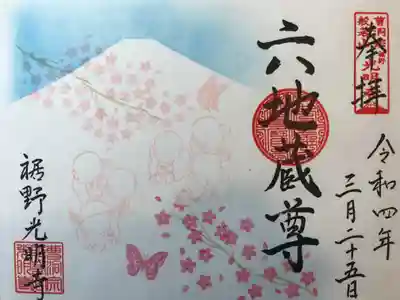 奉拝
令和四年
三月二十五日
六地蔵尊
裾野光明寺